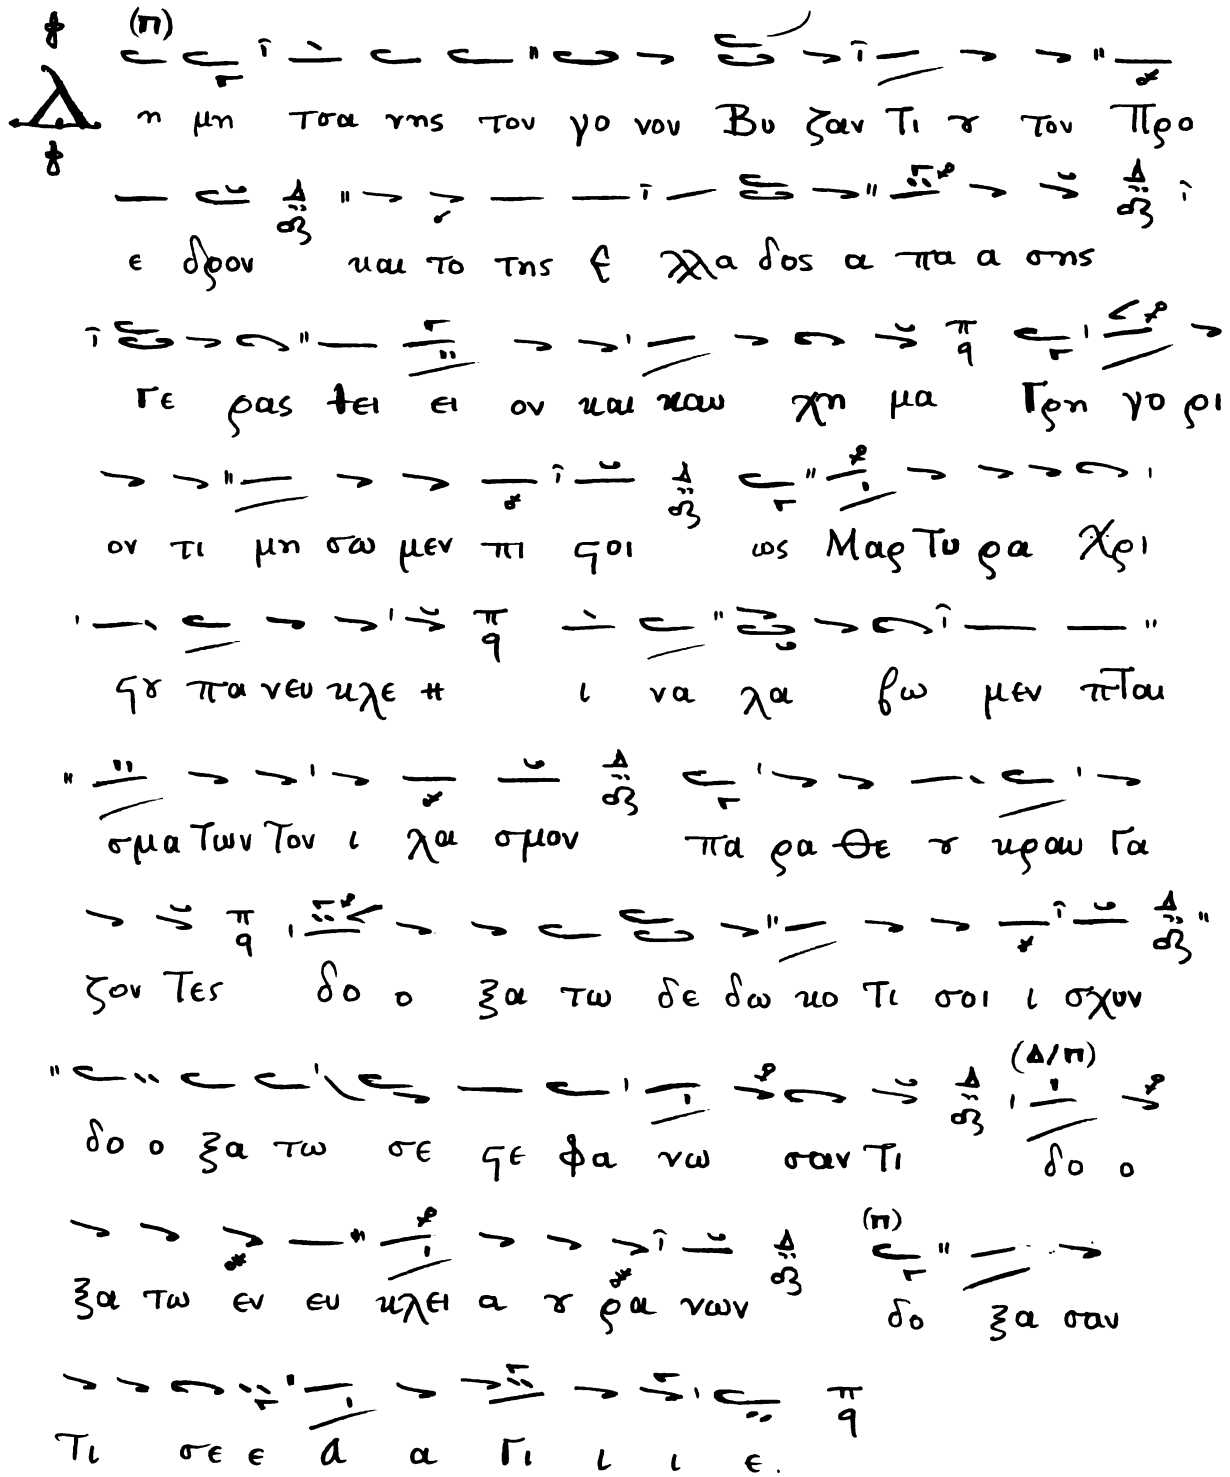 (π)
η μη τσα νης τον γο νον Βυ ζαν Τι ȣ τον Προ
ε δρον και το της Ε λλα δος α πα α σης
Γε ρας θει ει ον και καυ χη μα Γρη γο ρι
ον τι μη σω μεν πι ϛοι ως Μαρ Τυ ρα Χρι
ϛȣ πα νευ κλε η ι να λα βω μεν πΤαι
σμα Των Τον ι λα σμον πα ρα Θε ȣ κραυ Γα
ζον Τες δο ο ξα τω δε δω κο Τι σοι ι σχυν
(Δ/π)
δο ο ξα τω σε ϛε φα νω σαν Τι δο ο
(π)
ξα τω εν ευ κλει α ȣ ρα νων δο ξα σαν
Τι σε ε α α Γι ι ι ε.